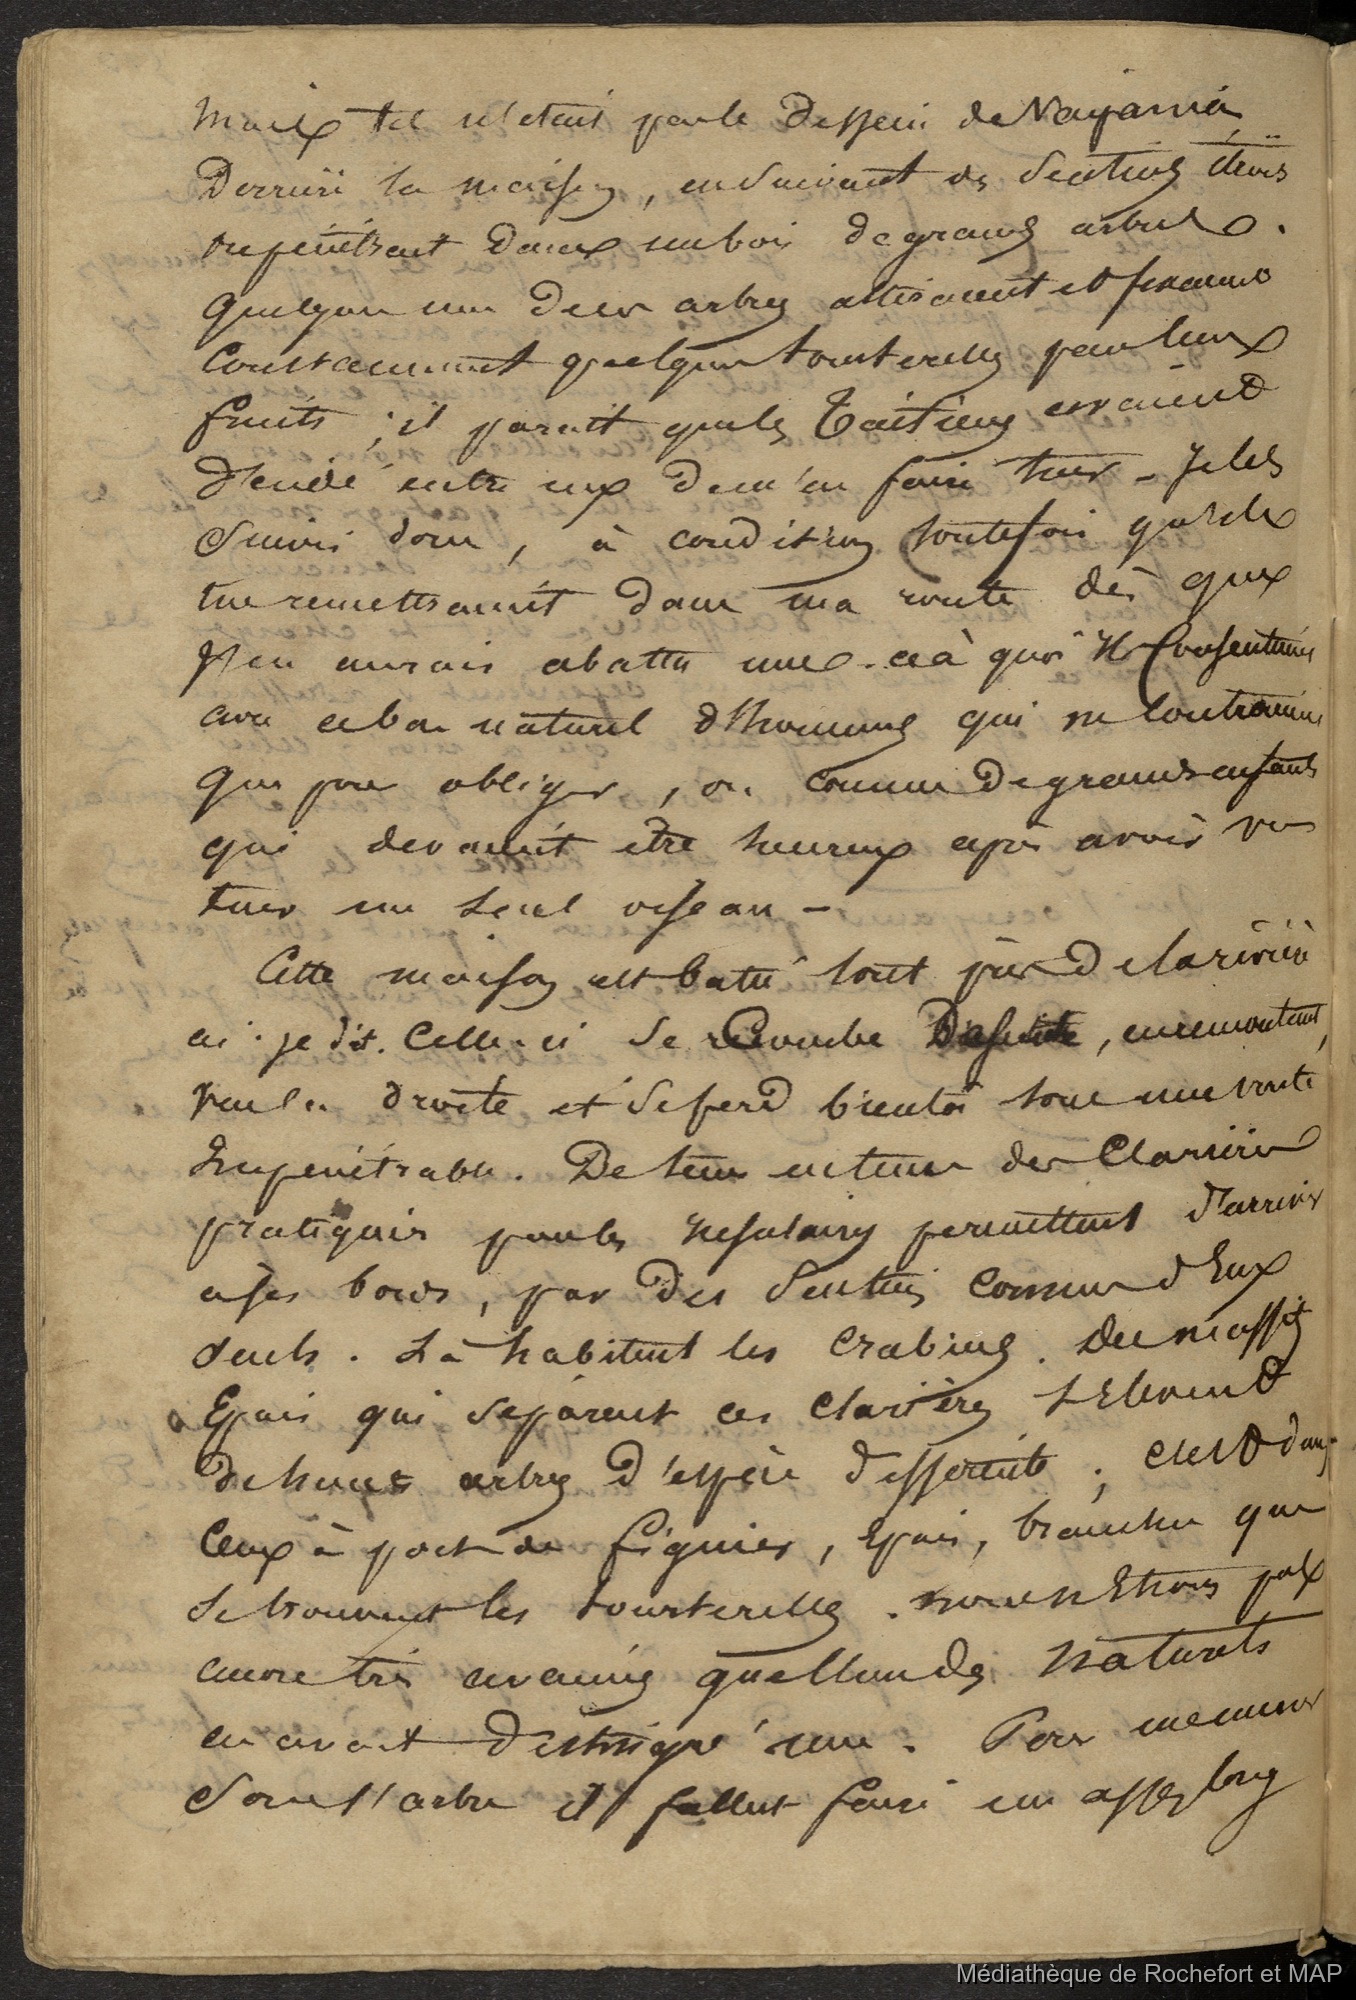 Mais tel n'etait pas le dessein de Nayania,
Derrière la maison, en suivant des sentiers étroits
on pénétrait dans un bois de grands arbres.
Quelques uns de ces arbres attiraient et fixaient
constamment quelques tourterelles par leurs
fruits ; il parait que les Taitiens avaient
décidé entre eux de m'en faire tuer - Je les
suivis donc, à condition toutefois qu'ils
me remettraient dans ma route dès que
j'en aurais abattu une. ce à quoi ils consentirent
avec ce bon naturel d'hommes qui ne
que pour obliger, ou comme de grands enfants
qui devaient être heureux après avoir vu
tuer un seul oiseau -
Cette maison est batie tout près de la rivière
ai-je dit. Celle-ci se recourbe ensuite, en remontant,
vers la droite et se perd bientôt sous une voute
impénétrable. De tems en tems des clarières
pratiquées par les insulaires permettent d'arriver
à ses bords, par des sentiers connus d'eux
seuls. Là habitent les crabiers. Des massifs
épais qui séparent ces clarières s'élèvent
de hauts arbres d'espèce differente ; c'est dans
ceux à port de figuier, épais, branchu que
se trouvent les tourterelles. nous n'étions pas
encore très avancés que l'un des naturels
en avait distingué une. Pour me mener
sous l'arbre il fallut faire un assez long